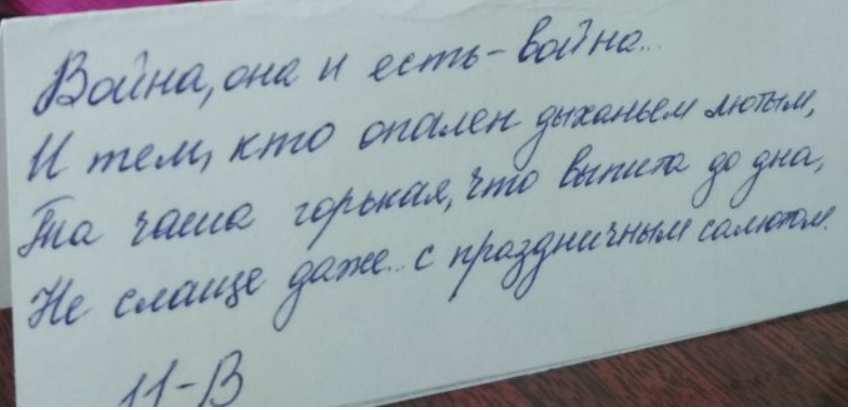 Война, она и есть - война...
И тем, кто опален дыханьем лютым,
Та чаша горькая, что выпита до дна,
Не слаще даже... с праздничным салютом.
11-В